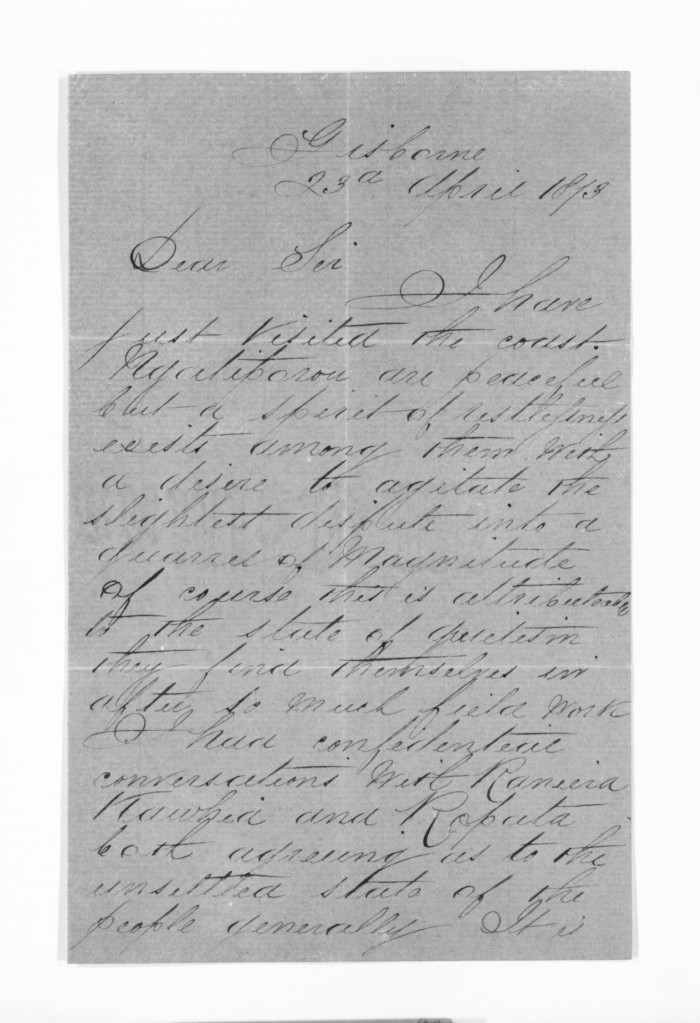 Gisborne
23d April 1873
Dear Sir
I have
just visited the coast.
Ngatiporou are peaceful
but a spirit of restlessness
exists among them with
a desire to agitate the
slightest dispute into a
quarrel of Magnitude
Of course this is attributable
to the state of quietism
they find themselves in
after so much field work
I had confidential
conversations with Raniera
Kawhia and Ropata
both agreeing as to the
unsettled state of the
people generally. It is